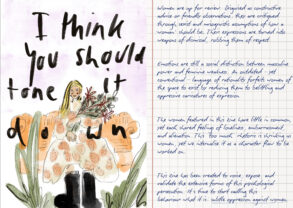 I think
you should
tone it
down
Women are up for review. Disguised as constructive
advice or friendly observations, they are critiqued
through weird and unrealistic assumptions of how a
woman should be. Their expressions are turned into
weapons of dismissal, robbing them of respect.
Emotions are still a social distinction between masculine
power and feminine weakness. An outdated yet
conventional language of rationality forfeits women of
the space to exist by reducing them to belittling and
oppressive caricatures of expression.
The women featured in this zine have little in common,
yet each shared feelings of loneliness, embarrassment
and alienation. This too much rhetoric is shrinking us
women, yet we internalize it as a character flaw to be
worked on.
This zine has been created to voice, expose, and
validate the extensive forms of this psychological
oppression. It's time to start calling this
behaviour what it is: subtle oppression against women.